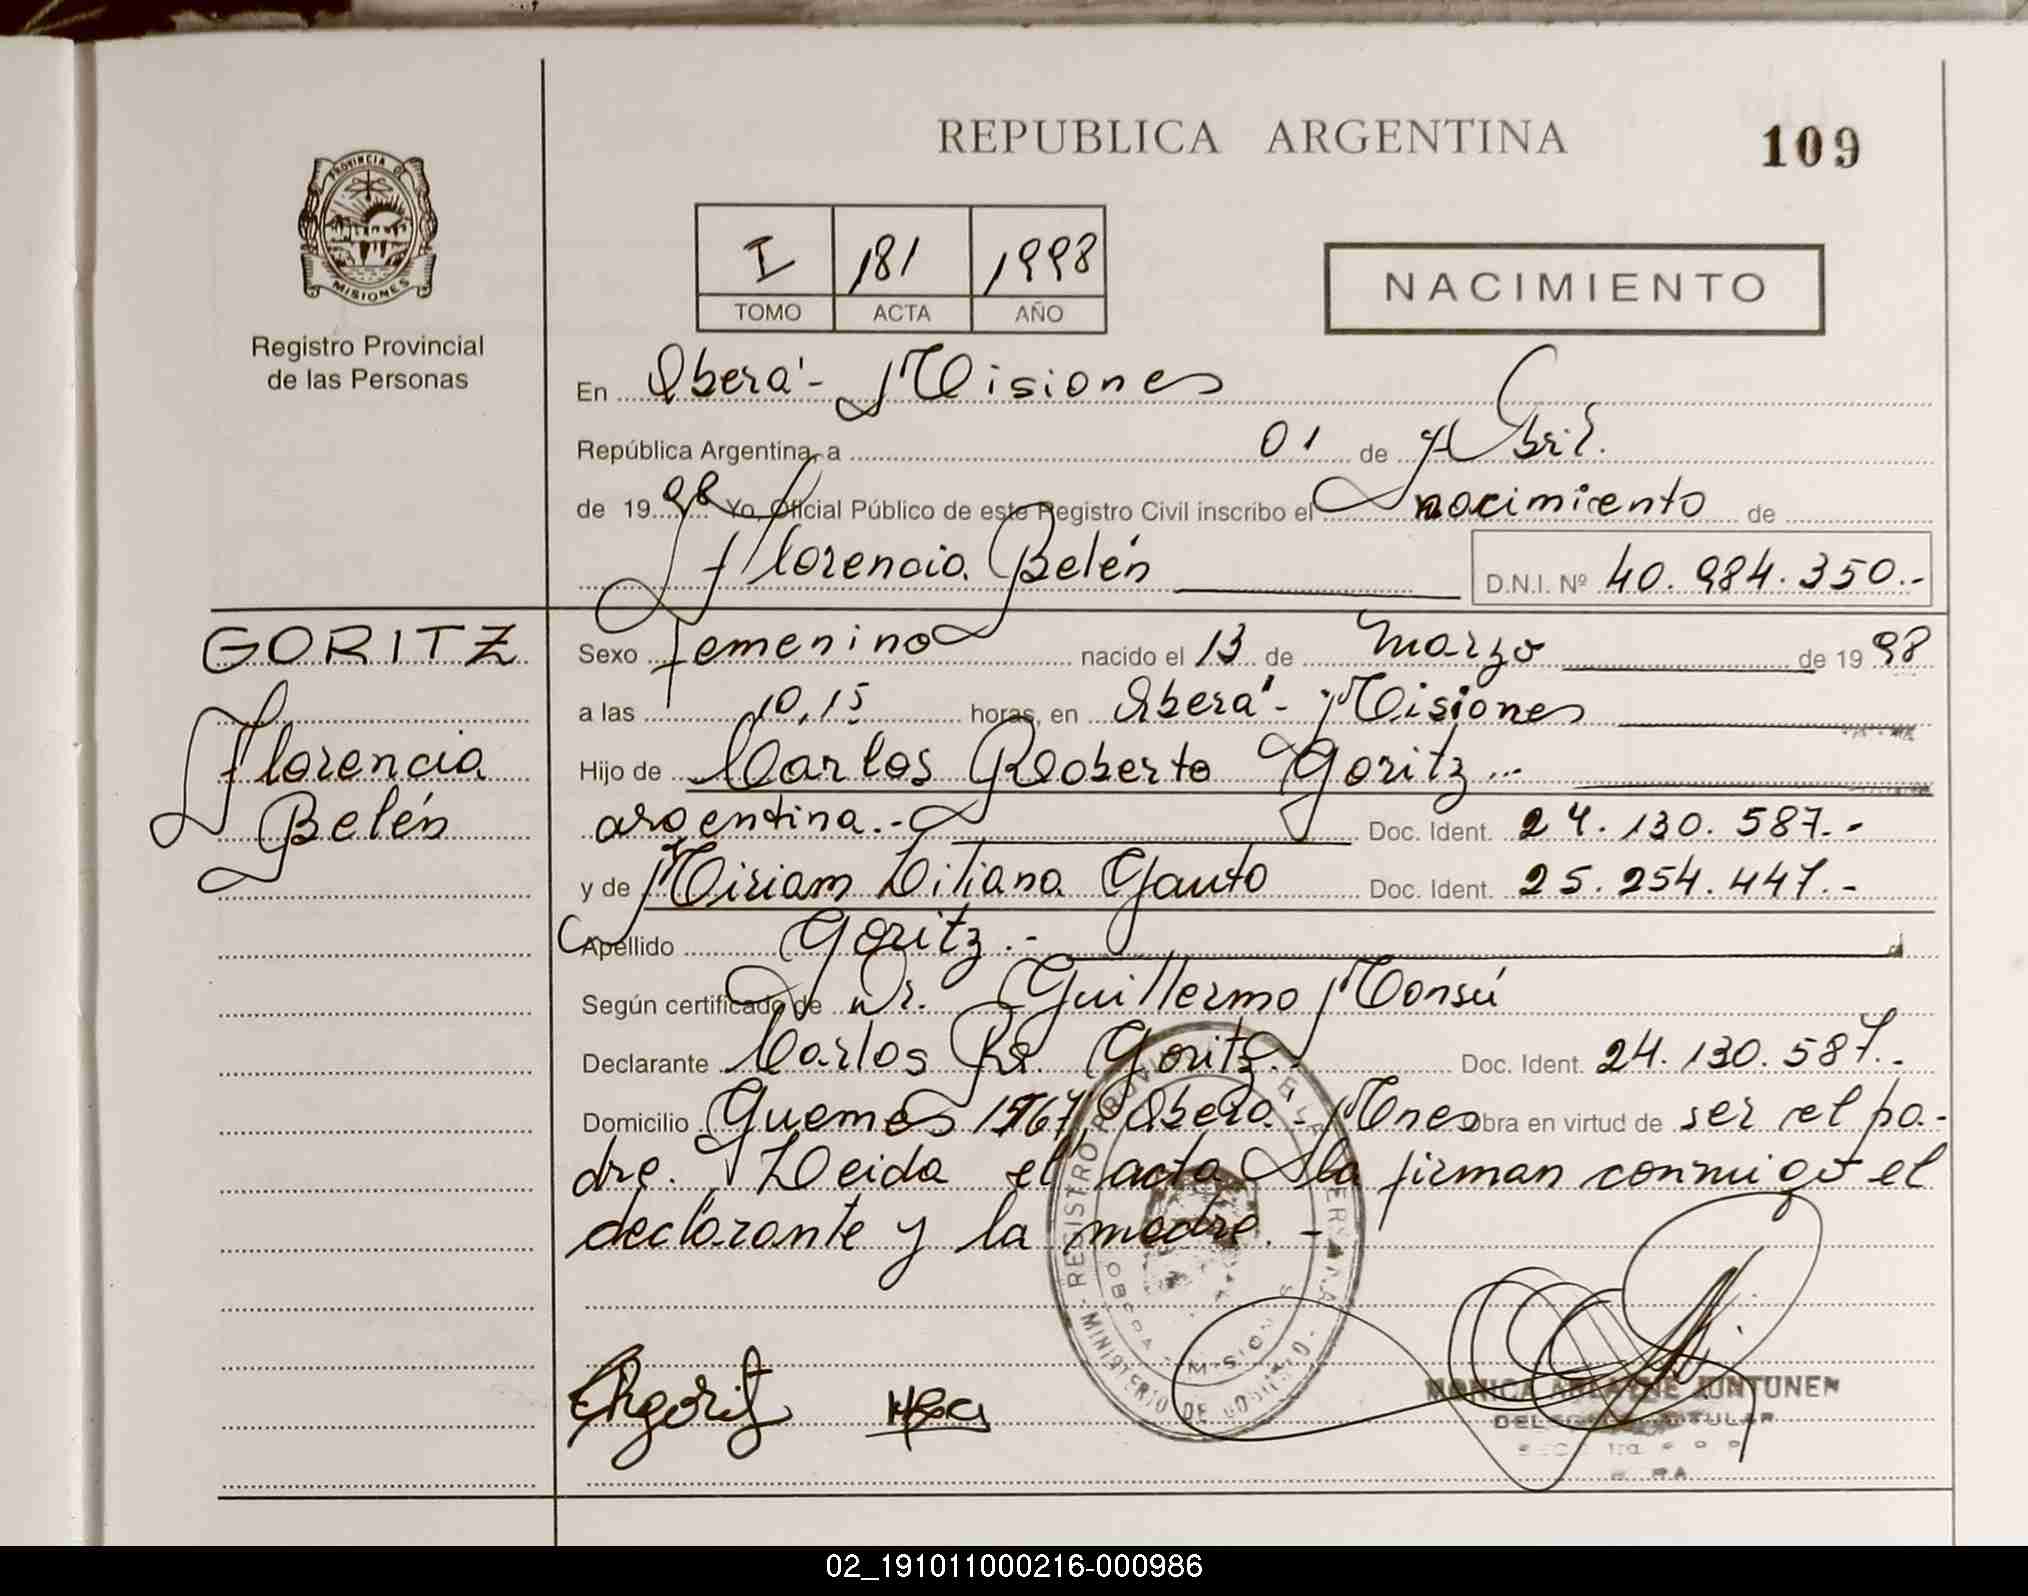 REPUBLICA ARGENTINA
109
PROVINCIA DE
MISIONES
Registro Provincial
de las Personas
I 181 1998
TOMO ACTA AÑO
NACIMIENTO
En Oberá - Misiones
República Argentina, a 01 de Abril.
de 1998 Yo, Oficial Público de este Registro Civil inscribo el nacimiento de
Florencia Belén D.N.I. Nº 40.984.350.-
GORITZ
Florencia
Belén
Sexo femenino nacido el 13 de Marzo de 1998
a las 10,15 horas, en Oberá - Misiones
Hijo de Carlos Roberto Goritz...
argentina.- Doc. Ident. 24.130.587.-
y de Miriam Liliana Gauto Doc. Ident. 25.254.447.-
Apellido Goritz.-
Según certificado de Dr. Guillermo Monsú
Declarante Carlos R. Goritz.- Doc. Ident. 24.130.587.-
Domicilio Guemes 1567, Oberá - Mnes Obra en virtud de ser el pa-
dre. Leida el acta la firman conmigo el
declarante y la madre. -
REGISTRO PROVINCIAL DE LAS PERSONAS
MINISTERIO DE GOBIERNO
OBERA MISIONES
MONICA JUNTUNEN
TITULAR
02_191011000216-000986